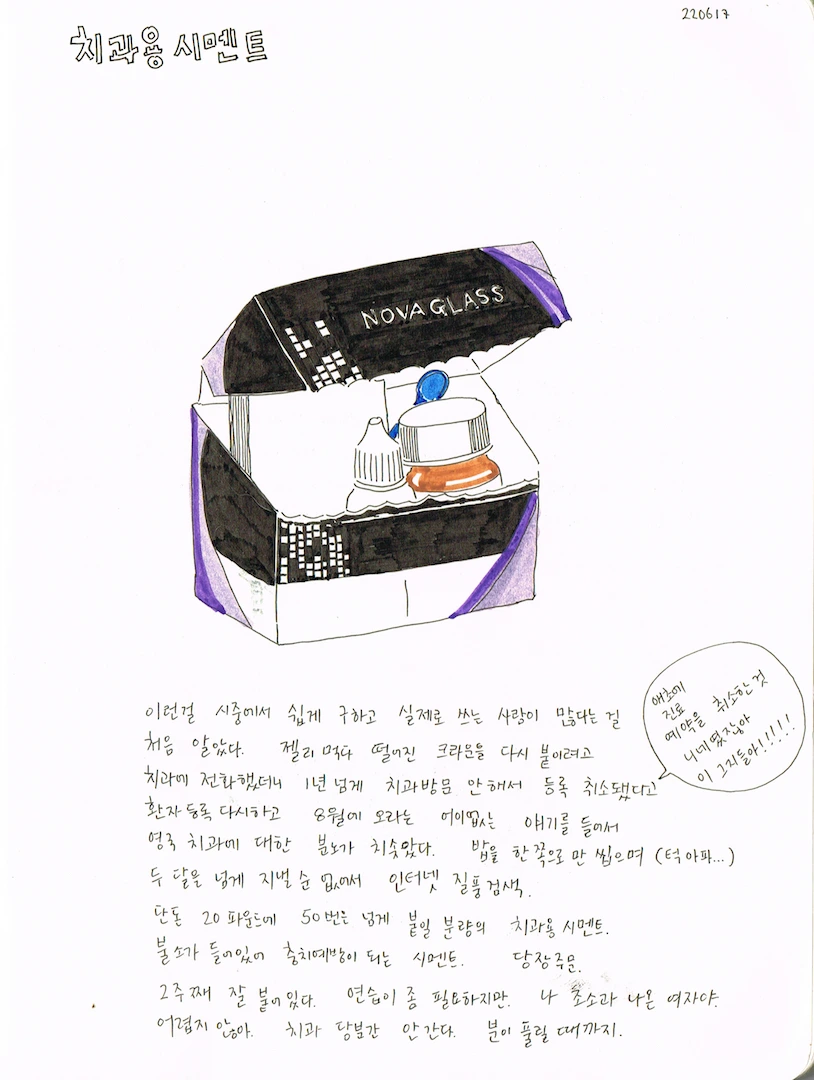 220617
치과용 시멘트
NOVAGLASS
이런걸 시중에서 쉽게 구하고 실제로 쓰는 사람이 많다는 걸
처음 알았다. 젤리 먹다 떨어진 크라운을 다시 붙이려고
치과에 전화했더니 1년 넘게 치과방문 안해서 등록 취소됐다고
애초에
진료
예약을 취소한 것
니네였잖아
이 그지들아!!!!!
환자등록 다시하고 8월에 오라는 어이없는 얘기를 들어서
영국 치과에 대한 분노가 치솟았다. 밥을 한쪽으로만 씹으며 (턱아파...)
두 달을 넘게 지낼 순 없어서 인터넷 질풍검색.
단돈 20파운드에 50번은 넘게 붙일 분량의 치과용 시멘트.
불소가 들어있어 충치예방이 되는 시멘트. 당장주문.
2주째 잘 붙어있다. 연습이 좀 필요하지만. 나 조소과 나온 여자야.
어렵지 않아. 치과 당분간 안간다. 분이 풀릴 때까지.